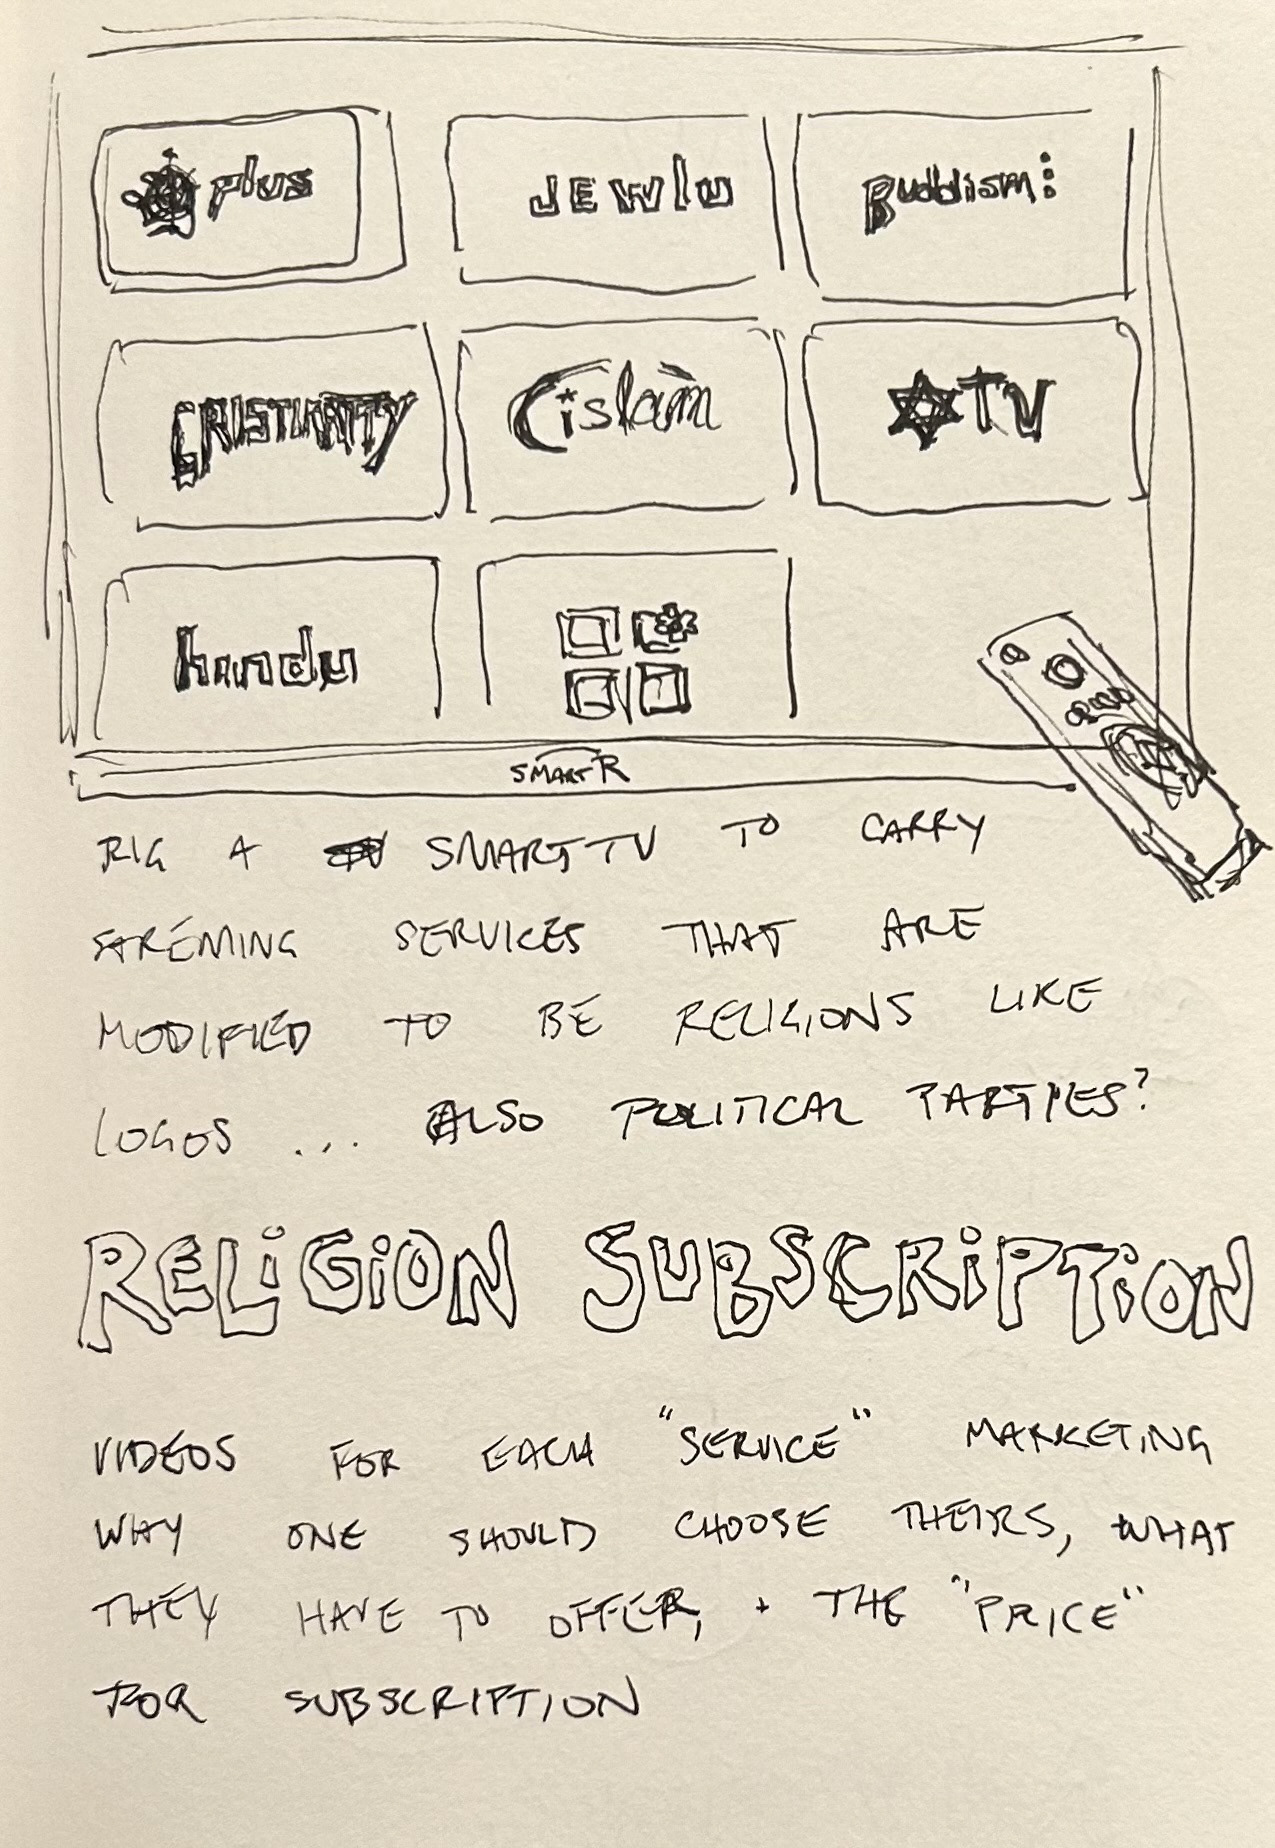 plus
JEWlu
Buddism:
CRISTIANITY
islam
TV
hindu
SMART R
RIG A SMART TV TO CARRY
STREMING SERVICES THAT ARE
MODIFIED TO BE RELIGIONS LIKE
LOGOS ... ALSO POLITICAL PARTIES?
RELIGION SUBSCRIPTION
VIDEOS FOR EACH "SERVICE" MARKETING
WHY ONE SHOULD CHOOSE THEIRS, WHAT
THEY HAVE TO OFFER, + THE "PRICE"
FOR SUBSCRIPTION